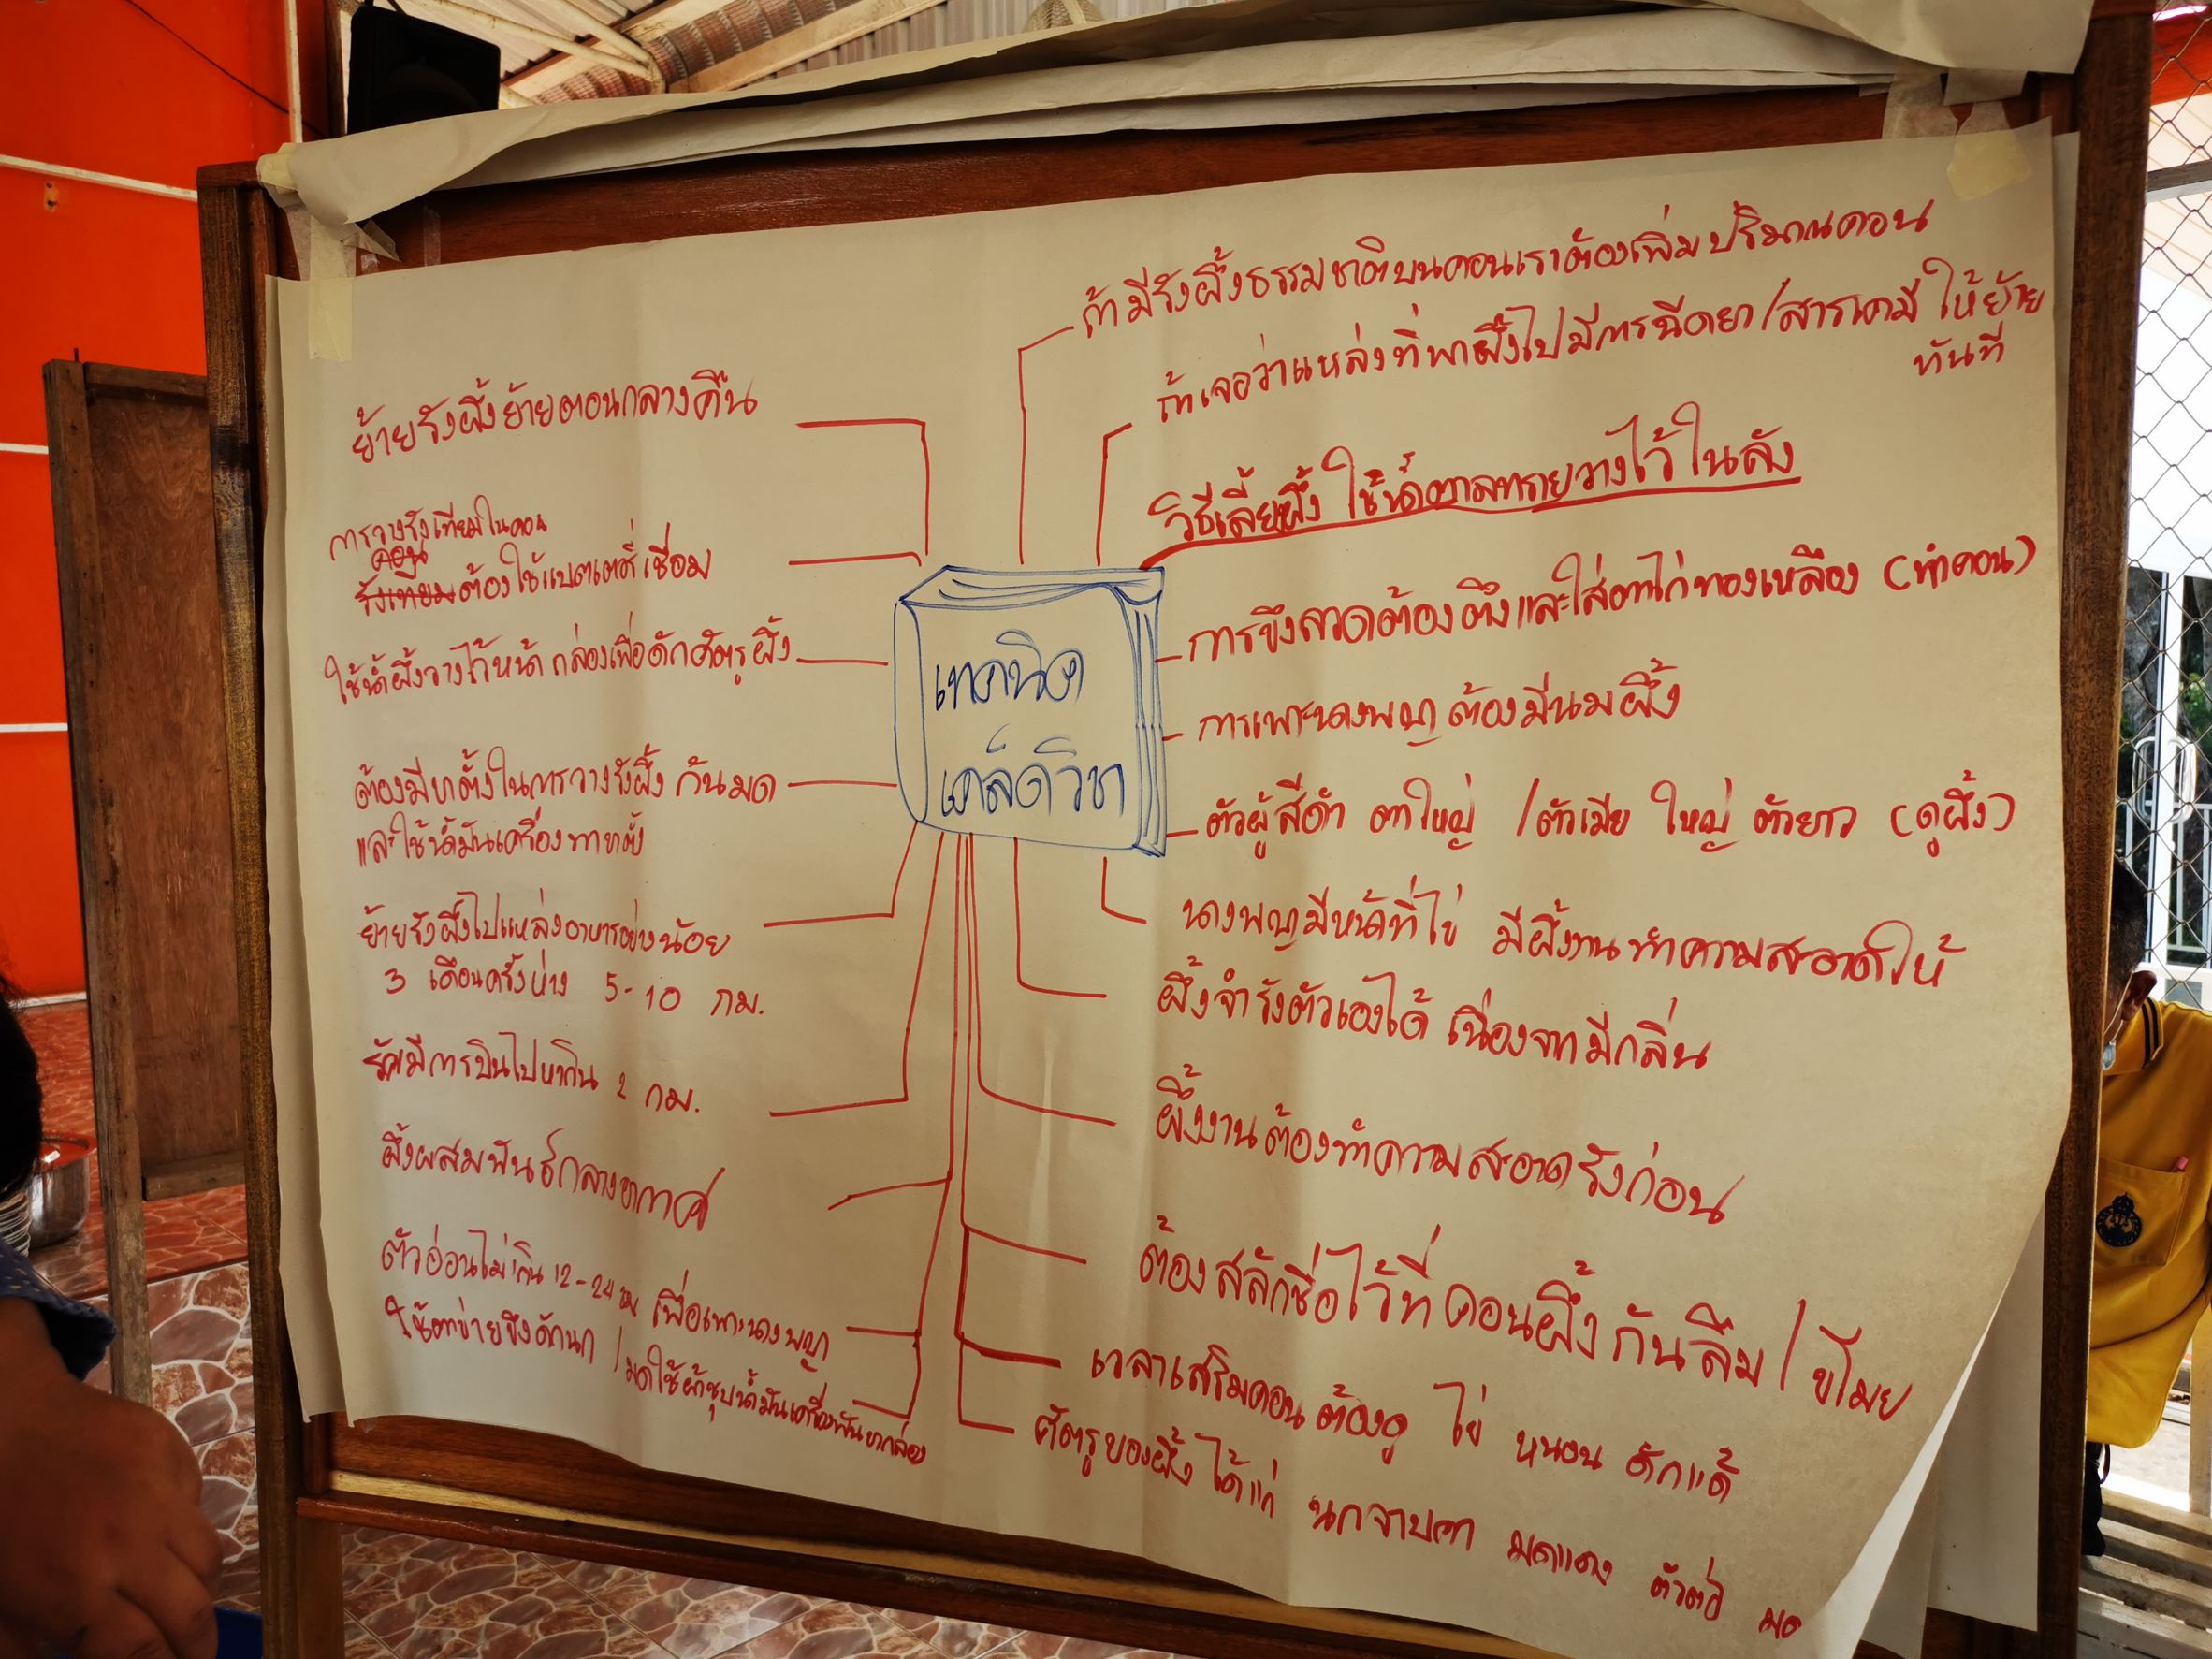 เทคนิค
เคล็ดวิชา
ย้ายรังผึ้งย้ายตอนกลางคืน
การวางรังเทียมในคอน
คอน
รังเทียมต้องใช้แบตเตอรี่เชื่อม
ใช้น้ำผึ้งวางไว้หน้ากล่องเพื่อดักศัตรูผึ้ง
ต้องมีขาตั้งในการวางรังผึ้ง กันมด
และใช้น้ำมันเครื่องทาขาตั้ง
ย้ายรังผึ้งไปแหล่งอาหารอย่างน้อย
3 เดือนครั้งห่าง 5-10 กม.
รัศมีการบินไปหากิน 2 กม.
ผึ้งผสมพันธ์กลางอากาศ
ตัวอ่อนไม่เกิน 12-24 ชม เพื่อเพาะนางพญา
ใช้ตาข่ายขึงดักนก / มดใช้ผ้าชุบน้ำมันเครื่องพันขากล่อง
ถ้ามีรังผึ้งธรรมชาติบนคอนเราต้องเพิ่มปริมาณคอน
ถ้าเจอว่าแหล่งที่พาผึ้งไปมีการฉีดยา/สารเคมี ให้ย้าย
ทันที
วิธีเลี้ยผึ้ง ใช้น้ำตาลทรายวางไว้ในลัง
การขึงลวดต้องตึงและใส่ตาไก่ทองเหลือง (ทำคอน)
การเพาะนางพญาต้องมีนมผึ้ง
ตัวผู้สีดำ ตาใหญ่ /ตัวเมีย ใหญ่ ตัวยาว (ดูผึ้ง)
นางพญามีหน้าที่ไข่ มีผึ้งงานทำความสะอาดให้
ผึ้งจำรังตัวเองได้ เนื่องจากมีกลิ่น
ผึ้งงานต้องทำความสะอาดรังก่อน
ต้องสลักชื่อไว้ที่คอนผึ้งกันลืม / ขโมย
เวลาเสริมคอนต้องดู ไข่ หนอน ดักแด้
ศัตรูของผึ้ง ได้แก่ นกจาบคา มดแดง ตัวต่อ มด